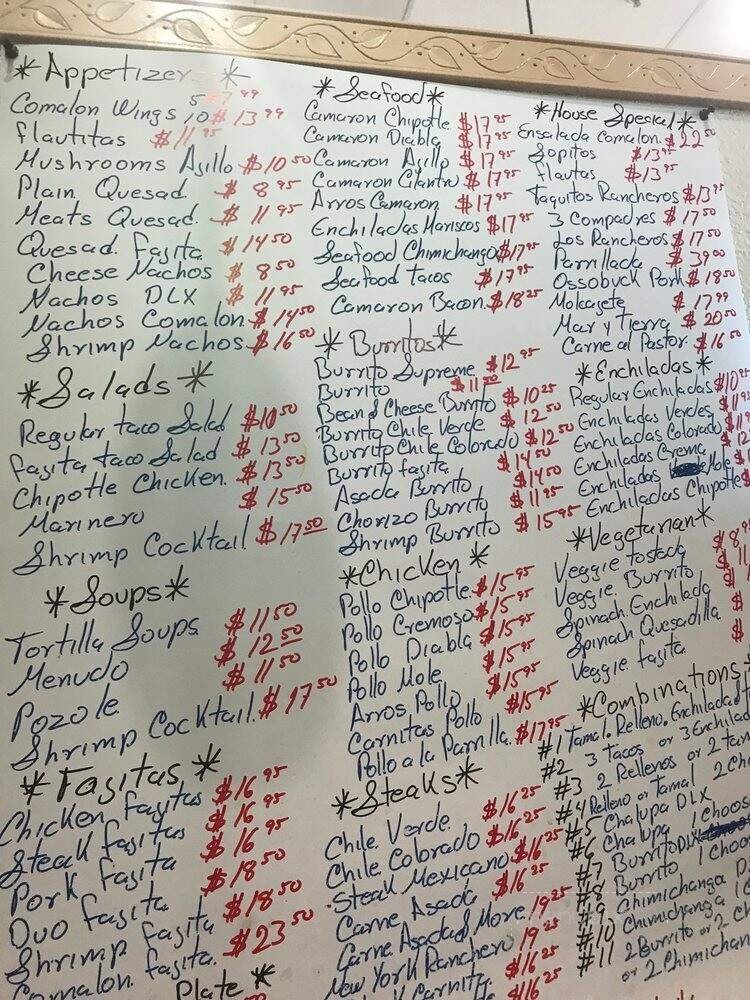 *Appetizer *
Comalon Wings 5 $7.99
10 $13.99
flautitas $11.95
Mushrooms Ajillo $10.50
Plain Quesad $8.95
Meats Quesad. $11.95
Quesad. Fajita $14.50
Cheese Nachos $8.50
Nachos DLX $11.95
Nachos Comalon $14.50
Shrimp Nachos $16.50
*Salads*
Regular taco Salad $10.50
fajita taco Salad $13.50
Chipotle Chicken $13.50
Marinero $15.50
Shrimp Cocktail $17.50
*Soups*
Tortilla Soups $11.50
Menudo $12.50
Pozole $11.50
Shrimp Cocktail. $17.50
*Fajitas*
Chicken fajitas $16.95
Steak fajitas $16.95
Pork fajita $16.95
Duo fajita $18.50
Shrimp fajita $18.50
Comalon fajita. $23.50
Plate *
*Seafood*
Camaron Chipotle $17.95
Camaron Diabla $17.95
Camaron Ajillo $17.95
Camaron Cilantro $17.95
Arros Camaron $17.95
Enchiladas Mariscos $17.95
Seafood Chimichanga $17.95
Seafood tacos $17.95
Camaron Bacon. $18.25
*Burritos*
Burrito Supreme $12.95
Burrito $11.50
Bean & Cheese Burrito $10.25
Burrito Chile Verde $12.50
Burrito Chile Colorado $12.50
Burrito fajita $14.50
Asada Burrito $14.50
Chorizo Burrito $11.95
Shrimp Burrito $15.95
*Chicken*
Pollo Chipotle $15.95
Pollo Cremoso $15.95
Pollo Diabla $15.95
Pollo Mole $15.95
Arros Pollo $15.95
Carnitas Pollo $15.95
Pollo a la Parrilla. $17.95
*Steaks*
Chile Verde $16.25
Chile Colorado $16.25
Steak Mexicano $16.25
Carne Asada $16.25
Carne Asada & More 19.25
New York Ranchero 19.25
Carnita $16.25
$16.25
*House Special*
Ensalada Comalon. $22.50
Sopitos $13.95
flautas $13.95
Taquitos Rancheros $13.95
3 Compadres $17.50
Los Rancheros $17.50
Parrillada $39.00
Ossobuck Pork $18.50
Molcajete $17.99
Mar y Tierra $20.50
Carne al Pastor $16.50
*Enchiladas*
Regular Enchiladas $10.95
Enchiladas Verdes
Enchiladas Colorado
Enchiladas Crema
Enchiladas Mole
Enchiladas Chipotle
*Vegetarian*
Veggie Tostada $8.95
Veggie Burrito
Spinach Enchilada
Spinach Quesadilla
Veggie fajita
*Combinations
#1 Tamal. Relleno. Enchilada
#2 3 Tacos or 3 Enchilad
#3 2 Rellenos or 2 tam
#4 Relleno or Tamal 2 Ch
#5 Chalupa DLX
#6 Chalupa 1 Choos
#7 Burrito DLX
#8 Burrito 1 Choos
#9 Chimichanga D
#10 Chimichanga 1
#11 2 Burrito or 2 C
or 2 Chimichan